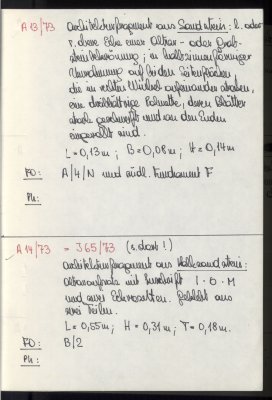 A 13/73 Architekturfragment aus Sandstein: l. oder
r. obere Ecke einer Altar- oder Grab-
steinbekrönung; in halbzinnenförmiger
Umrahmung auf beiden Seitenflächen,
die im rechten Winkel aufeinander stoßen,
eine dreiblättrige Palmette, deren Blätter
stark geschweift und an den Enden
eingerollt sind.
L = 0,13m ; B = 0,08m ; H = 0,14m
FO: A/4/N und südl. Fundament F
Ph:
A 14/73 = 365/73 (s. dort!)
Architekturfragment aus Kalksandstein:
Altaraufsatz mit Inschrift I · O · M
und zwei Echrosetten. Geklebt aus
zwei Teilen.
L = 0,55m ; H = 0,31m ; T = 0,18m.
FO: B/2
Ph: